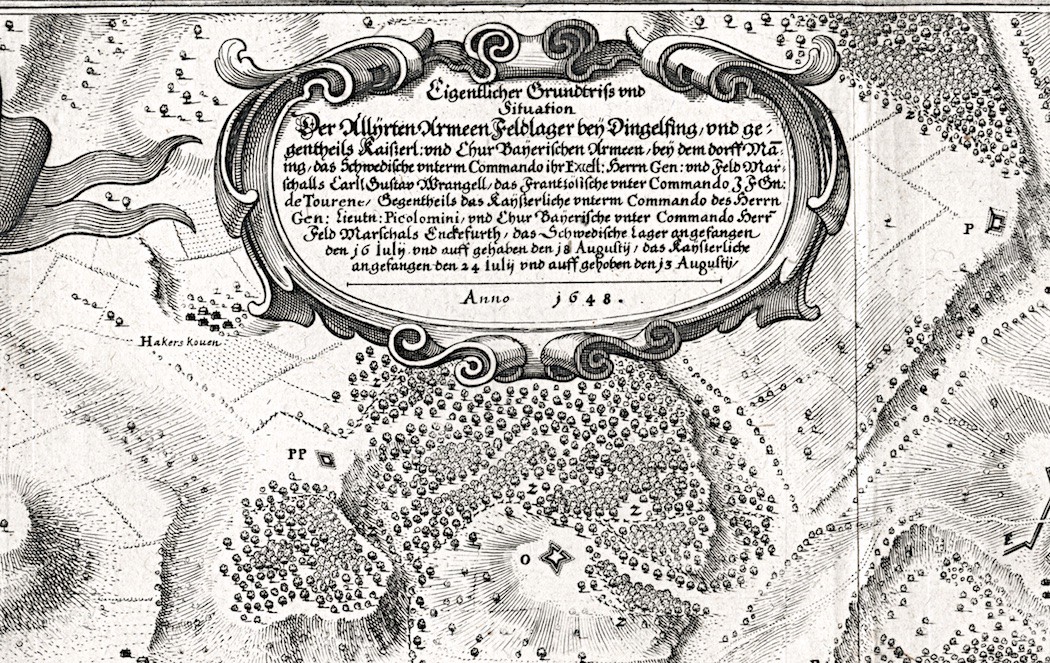 Eigentlicher Grundtriſs vnd
Situation
Der Allÿrten Armeen Feldlager beÿ Dingelfing, vnd ge-
gentheils Kaiſſerl: vnd Chur Baÿeriſchen Armeen, beÿ dem dorff Mä-
ing, das Schwediſche vnterm Commando ihr Excell: Herrn Gen: vnd Feld Mar-
ſchalls Carll Guſtav Wrangell, das Frantzöſiſche vnter Commando J. F Gn:
de Tourene, Gegentheils das Kaÿſserliche vnterm Commando des Herrn
Gen: Lieutn: Picolomini, vnd Chur Baÿeriſche vnter Commando Herr
Feld Marſchals Enckefurth, das Schwediſche Lager angefangen
den 16 Iulij vnd auff gehaben den 18 Auguſtij, das Kaÿſserliche
angefangen den 24 Iulij vnd auff gehoben den 13 Auguſtij,
Anno 1648.
P
Hakers kouen
Z
PP
Z
Z
Z
O
E
Z